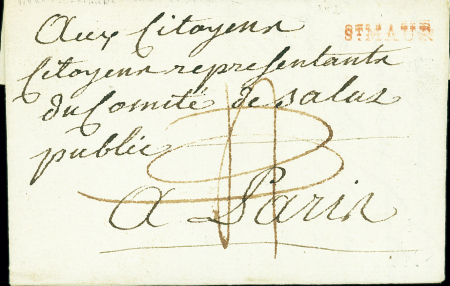 STMAUR
Aux Citoyens
Citoyens representants
du Comité de salus
public
A Paris